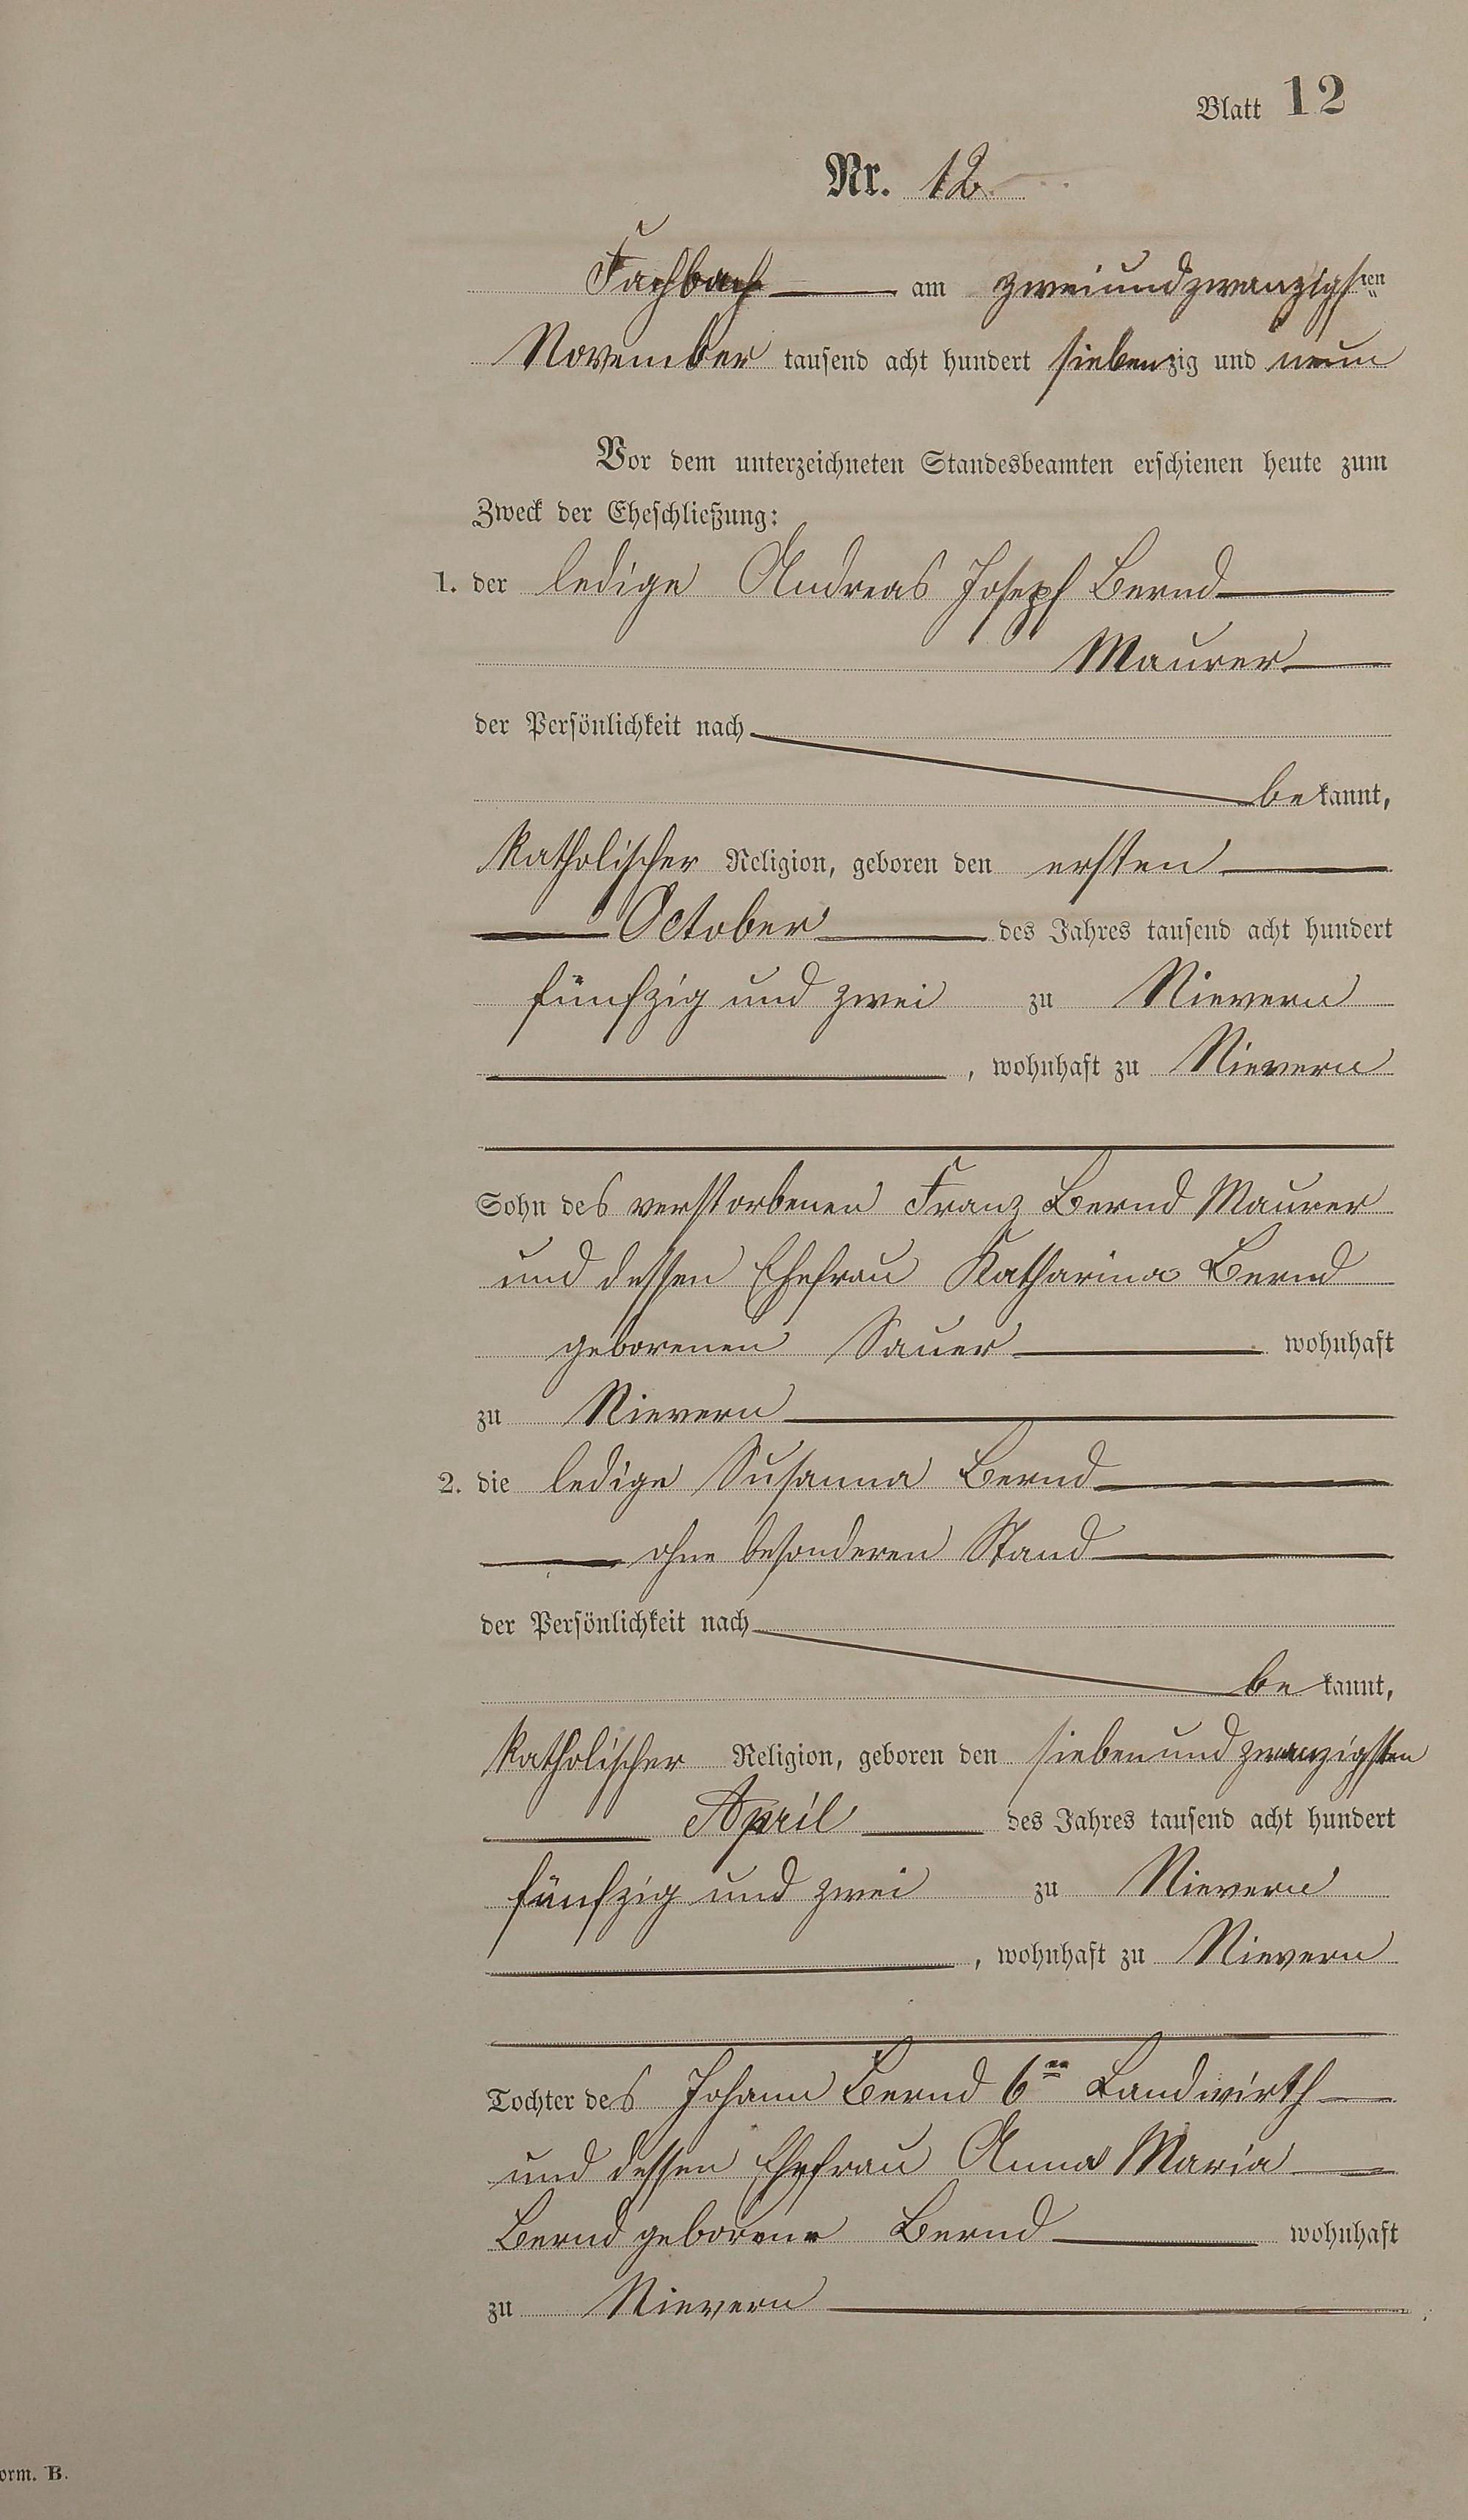 Blatt 12
Nr. 12.
Fachbach am zweiundzwanzigsten
November tausend acht hundert siebenzig und neun
Vor dem unterzeichneten Standesbeamten erschienen heute zum
Zweck der Eheschließung:
1. der ledige Andreas Joseph Bernd
Maurer
der Persönlichkeit nach
bekannt,
katholischer Religion, geboren den ersten
October des Jahres tausend acht hundert
fünfzig und zwei zu Nievern
, wohnhaft zu Nievern
Sohn des verstorbenen Franz Bernd Maurer
und dessen Ehefrau Katharina Bernd
geborenen Sauer wohnhaft
zu Nievern
2. die ledige Susanna Bernd
ohne besonderen Stand
der Persönlichkeit nach
bekannt,
katholischer Religion, geboren den siebenundzwanzigsten
April des Jahres tausend acht hundert
fünfzig und zwei zu Nievern
, wohnhaft zu Nievern
Tochter des Johann Bernd 6ten Landwirth
und dessen Ehefrau Anna Maria
Bernd geborene Bernd wohnhaft
zu Nievern
orm. B.